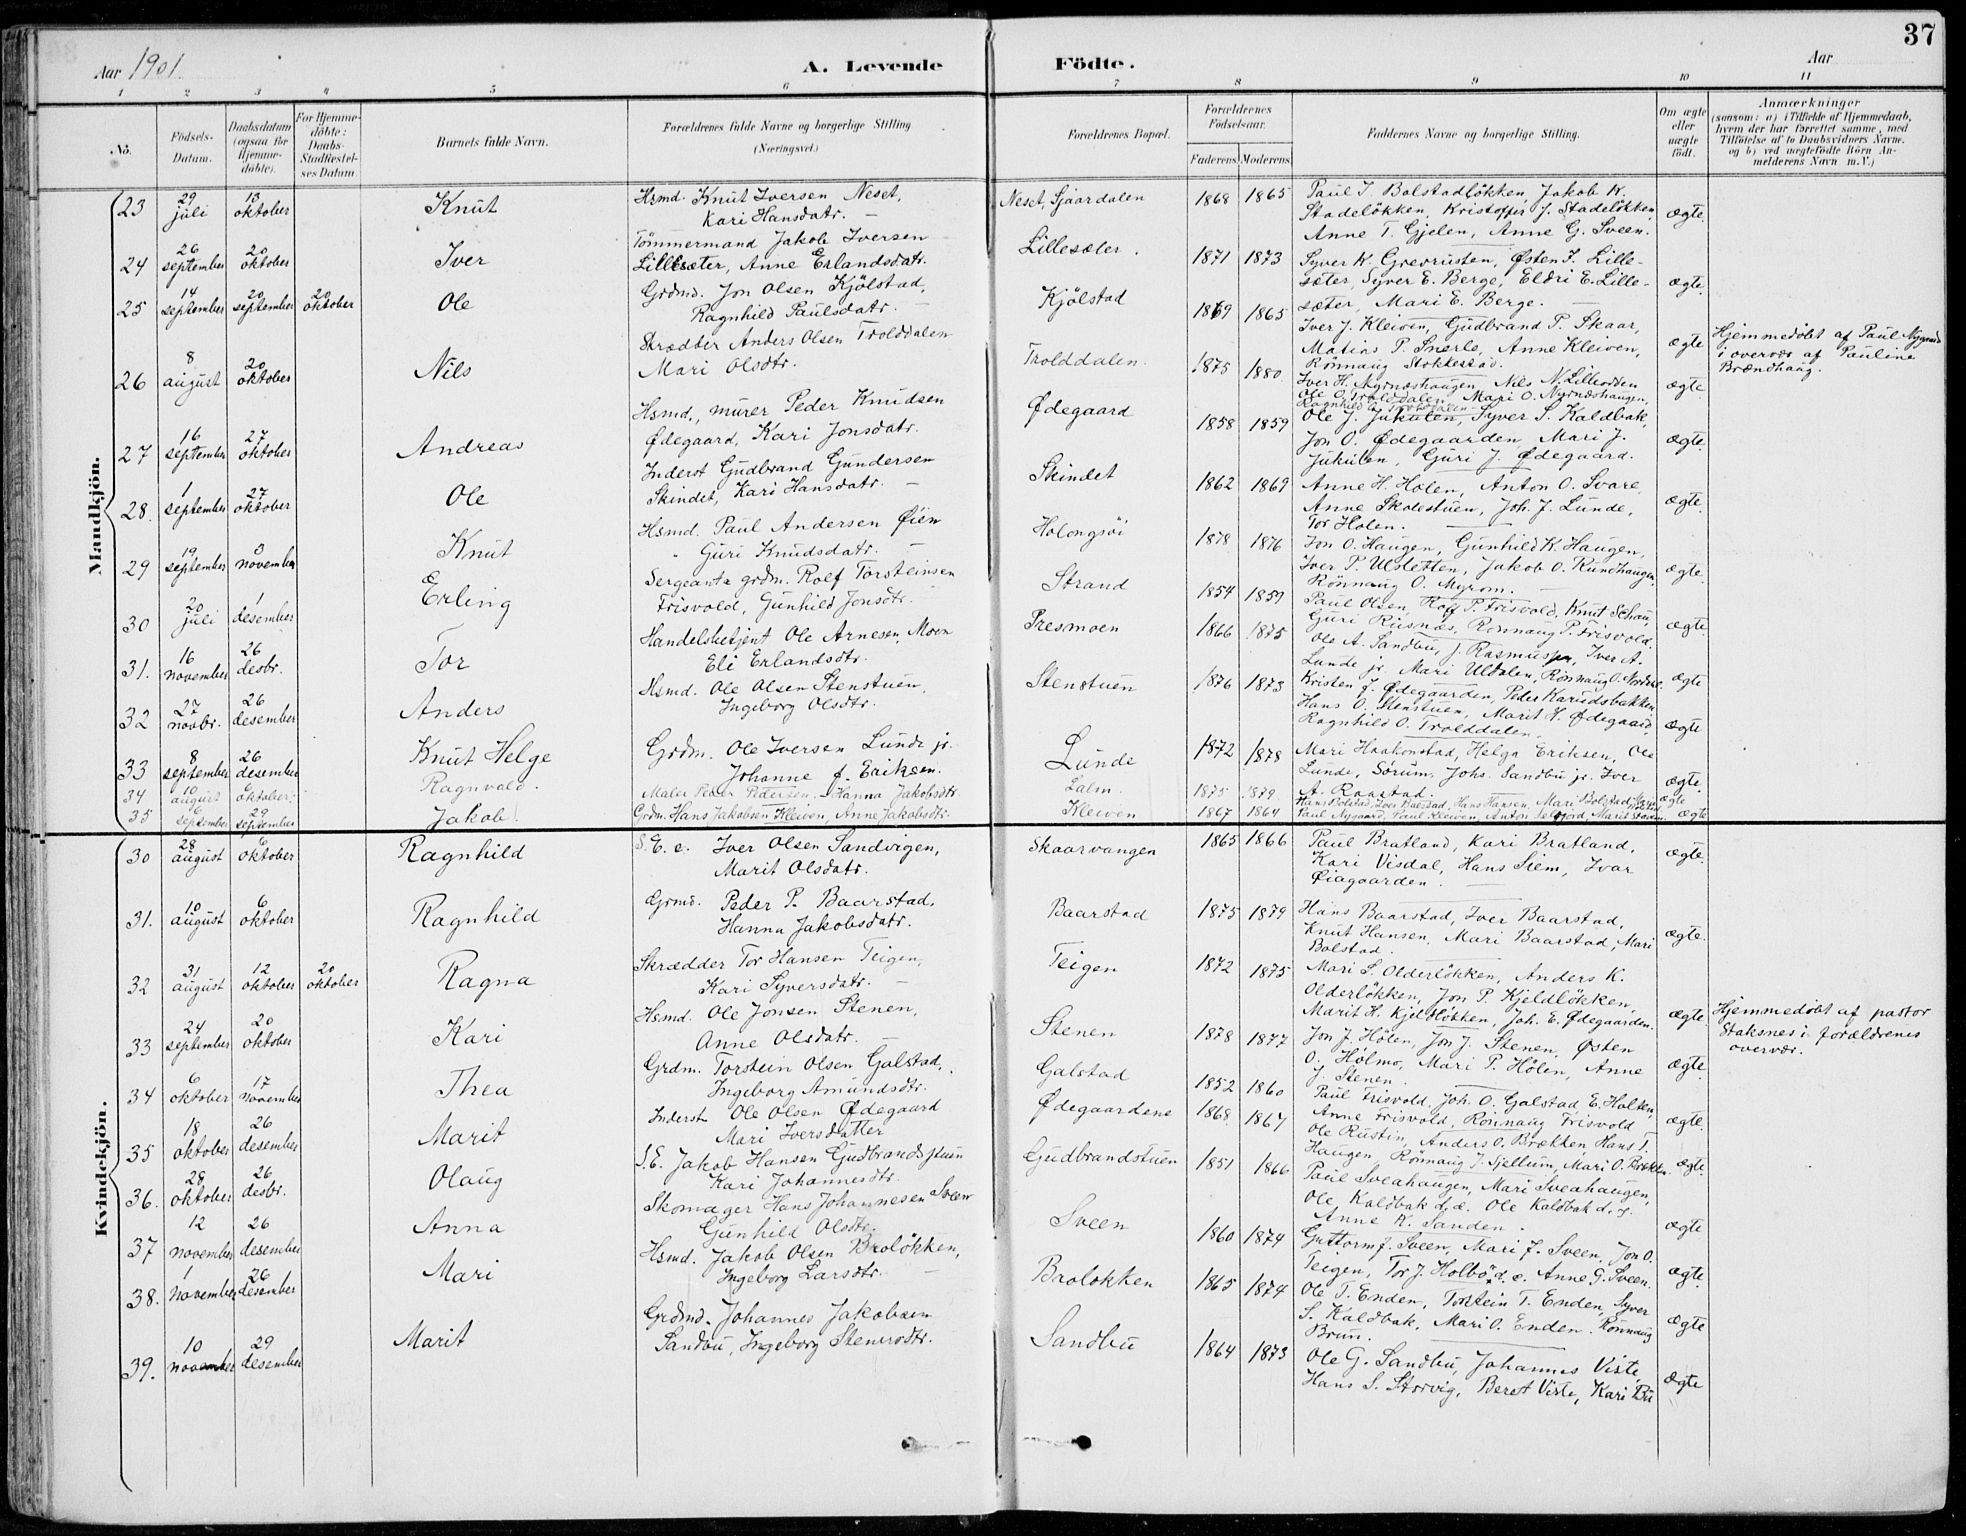 37
Aar 1901
A. Levende Fødte.
Aar
1 2 3 4 5 6 7 8 9 10 11
No.
Fødsels-Datum.
Daabsdatum (ogsaa for Hjemme-døbte).
For Hjemme-døbte: Daabs-Stadfæstel-ses Datum.
Barnets fulde Navn.
Forældrenes fulde Navne og borgerlige Stilling (Næringsvei.)
Forældrenes Bopæl.
Forældrenes Fødselsaar.
Faderens. Moderens.
Faddernes Navne og borgerlige Stilling.
Om ægte eller uægte født.
Anmærkninger
(saasom: a) i Tilfælde af Hjemmedaab, hvem der har forrettet samme, med Tilføielse af to Daabsvidners Navne. og b) ved uægtefødte Börn An-melderens Navn m. V.)
Mandkjön.
23 29 juli 13 oktober Knut Hsmd. Knut Iversen Neset, Kari Hansdatr. Neset, Sjaardalen 1868 1865 Paul J. Bolstadløkken, Jakob K. Stadeløkken, Kristoffer J. Stadeløkken, Anne T. Gjelen, Anne G. Sveen. ægte.
24 26 september 20 oktober Iver Tømmermand Jakob Iversen Lillesæter, Anne Erlandsdatr. Lillesæter. 1871 1873 Syver K. Grevrusten, Østen J. Lillesæter, Syver E. Berge, Eldri E. Lillesæter, Mari E. Berge. ægte.
25 14 september 20 september 20 oktober Ole Grdmd. Jon Olsen Kjølstad, Ragnhild Paulsdatr. Kjølstad 1869 1865 Iver J. Kleiven, Gudbrand P. Skaar, Matias P. Snerle, Anne Kleiven, Rønnaug Stokkestad. ægte Hjemmedøbt af Paul Nygaard i overvær af Pauline Brændhaug.
26 8 august 20 oktober Nils Skrædder Anders Olsen Trolddalen Mari Olsdtr. Trolddalen. 1875 1880 Iver H. Myrnæshaugen, Nils N. Lilleodden Ole O. Trolddalen, Mari O. Myrnæshaugen, Ragnhild O. Trolddalen. ægte
27 16 september 27 oktober Andreas Hsmd., murer Peder Knudsen Ødegaard, Kari Jonsdatr. Ødegaard 1858 1859 Ole J. Jukulen, Syver S. Kaldbak, Jon O. Ødegaarden, Mari J. Jukulen, Guri J. Ødegaard. ægte.
28. 1 september 27 oktober Ole Inderst Gudbrand Gundersen Skindet, Kari Hansdatr. Skindet 1862 1869 Anne H. Holen, Anton O. Svare, Anne Skolestuen, Joh. J. Lunde, Tor Holen. ægte.
29 19 september 8 november Knut Hsmd. Paul Andersen Øien Guri Knudsdatr. Holongsøi 1878 1876 Jon O. Haugen, Gunhild K. Haugen, Iver P. Ulsletten, Jakob O. Rundhaugen, Rønnaug O. Myrom. ægte.
30 20 juli 1 desember Erling Sergeant & grdm. Rolf Torsteinsen Frisvold, Gunhild Jonsdtr. Strand 1854 1859 Paul Olsen, Rolf P. Frisvold, Knut Schau, Guri Rusnæs, Rønnaug P. Frisvold. ægte.
31. 16 november 26 desbr. Tor Handelsbetjent Ole Arnesen Moen Eli Erlandsdtr. Presmoen 1866 1875 Ole A. Sandbu, J. Rasmussen, Iver A. Lunde jr. Mari Uldalen, Rønnaug O. Nordal. ægte
32 27 novbr. 26 desember Anders Hsmd. Ole Olsen Stenstuen, Ingeborg Olsdtr. Stenstuen 1876 1873 Kristen J. Ødegaarden, Peder Karudsbakken Hans O. Stenstuen, Marit H. Ødegaard, Ragnhild O. Trolddalen. ægte.
33 8 september 26 desember Knut Helge Grdm. Ole Iversen Lunde jr. Johanne f. Eriksen. Lunde 1872 1878 Mari Haakonstad, Helga Eriksen, Ole Lunde, Sørum, Johs. Sandbu jr. Iver A. Raastad. ægte.
34 10 august 6 oktober. Ragnvald. Maler Peder Pedersen. Hanna Jakobsdtr. Lalm. 1875 1879. Hans Bolstad, Iver Baarstad, Hans Hansen, Mari Bolstad, ægte
35 6 september 29 september Jakob. Grdm. Hans Jakobsen Kleiven, Anne Jakobsdtr. Kleiven 1867 1864 Paul Nygaard, Paul Kleiven, Anton Selfjord, Marit ægte
Kvindekjön.
30 28 august 6 oktober Ragnhild S. E. e. Iver Olsen Sandvigen, Marit Olsdatr. Skaarvangen 1865 1866 Paul Bratland, Kari Bratland, Kari Visdal, Hans Siem, Ivar Øiagaarden. ægte.
31. 10 august 6 oktober Ragnhild Grmd. Peder P. Baarstad, Hanna Jakobsdatr. Baarstad 1875 1879 Hans Baarstad, Iver Baarstad, Knut Hansen, Mari Baarstad, Mari Bolstad. ægte.
32 31 august 12 oktober 20 oktober Ragna Skrædder Tor Hansen Teigen, Kari Syversdatr. Teigen 1872 1875 Mari S. Olderløkken, Anders K. Olderløkken, Jon P. Kjeldløkken, Marit H. Kjeldløkken, Joh. E. Ødegaarden. ægte Hjemmedøbt af pastor Staksnes i forældrenes overvær.
33 24 september 20 oktober Kari Hsmd. Ole Jonsen Stenen, Anne Olsdatr. Stenen 1878 1877 Jon J. Holen, Jon J. Stenen, Østen O. Holmo, Mari P. Holen, Anne J. Stenen. ægte.
34 6 oktober 17 november Thea Grdm. Torstein Olsen Galstad, Ingeborg Amundsdtr. Galstad 1852 1860 Paul Frisvold, Joh. O. Galstad E. Holken Anne Frisvold, Rønnaug Frisvold ægte.
35 18 oktober 26 desember Marit Inderst Ole Olsen Ødegaard Mari Iversdatter Ødegaardene 1868 1867 Ole Rustin, Anders O. Brækken, Hans T. Haugen, Rønnaug J. Sjellum, Mari O. Brækken. ægte.
36. 28 oktober 26 desbr. Olaug S. E. Jakob Hansen Gudbrandstuen Kari Johannesdtr. Gudbrandstuen 1851 1866 Paul Sveahaugen, Mari Sveahaugen, Ole Kaldbak d. æ. Ole Kaldbak d. y. Anne K. Sanden. ægte
37 12 november 26 desember Anna Skomager Hans Johannesen Sveen Gunhild Olsdtr. Sveen 1860 1874 Guttorm J. Sveen, Mari J. Sveen, Jon O. Teigen, Tor J. Holbø d. e. Anne G. Sveen. ægte.
38. 1 november 26 desember Mari Hsmd. Jakob Olsen Broløkken, Ingeborg Larsdtr. Broløkken 1865 1874 Ole T. Enden, Torstein T. Enden, Syver S. Kaldbak, Mari O. Enden. Rønnaug Brun. ægte
39. 10 november 29 desember Marit Grdmd. Johannes Jakobsen Sandbu, Ingeborg Stenersdtr. Sandbu 1864 1873 Ole G. Sandbu, Johannes Viste, Hans S. Storvig, Beret Viste, Kari Bu ægte